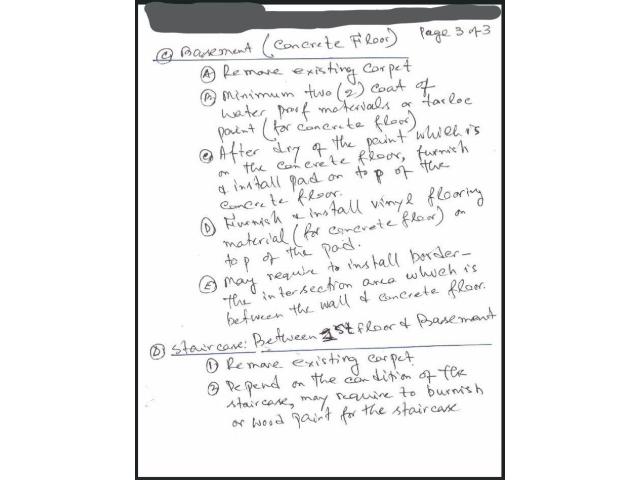 Page 3 of 3
(C) Basement (Concrete Floor)
(A) Remove existing carpet
(B) Minimum two (2) coat of
water proof materials or
paint (for concrete floor)
(C) After dry of the paint which is
on the concrete floor, furnish
& install pad on top of the
concrete floor.
(D) Furnish & install vinyl flooring
material (for concrete floor) on
top of the pad.
(E) May require to install border-
the intersection area which is
between the wall & concrete floor.
(D) Staircase: Between 1st floor & Basement
(1) Remove existing carpet
(2) Depend on the condition of the
staircase, may require to burnish
or wood paint for the staircase